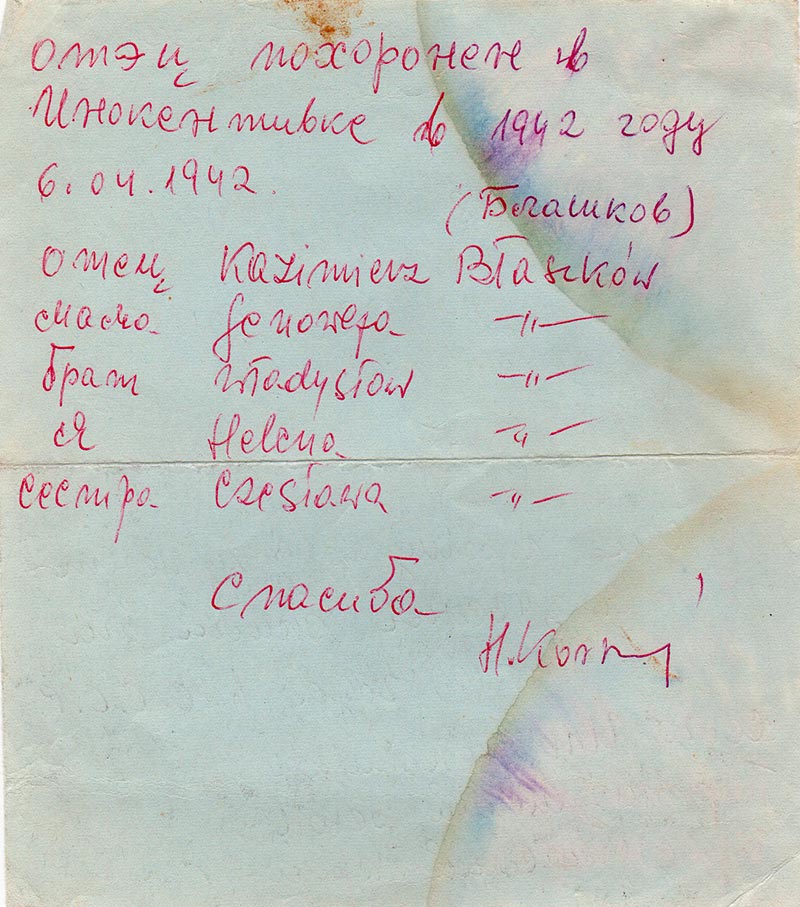 отэц похоронен в
Инокентивке в 1942 году
6.04.1942.
(Блашков)
отец Kazimierz Błaszków
мама Genowefa —"—
брат Władysław —"—
я Helena —"—
сестра Czesława —"—
Спасиба
H.